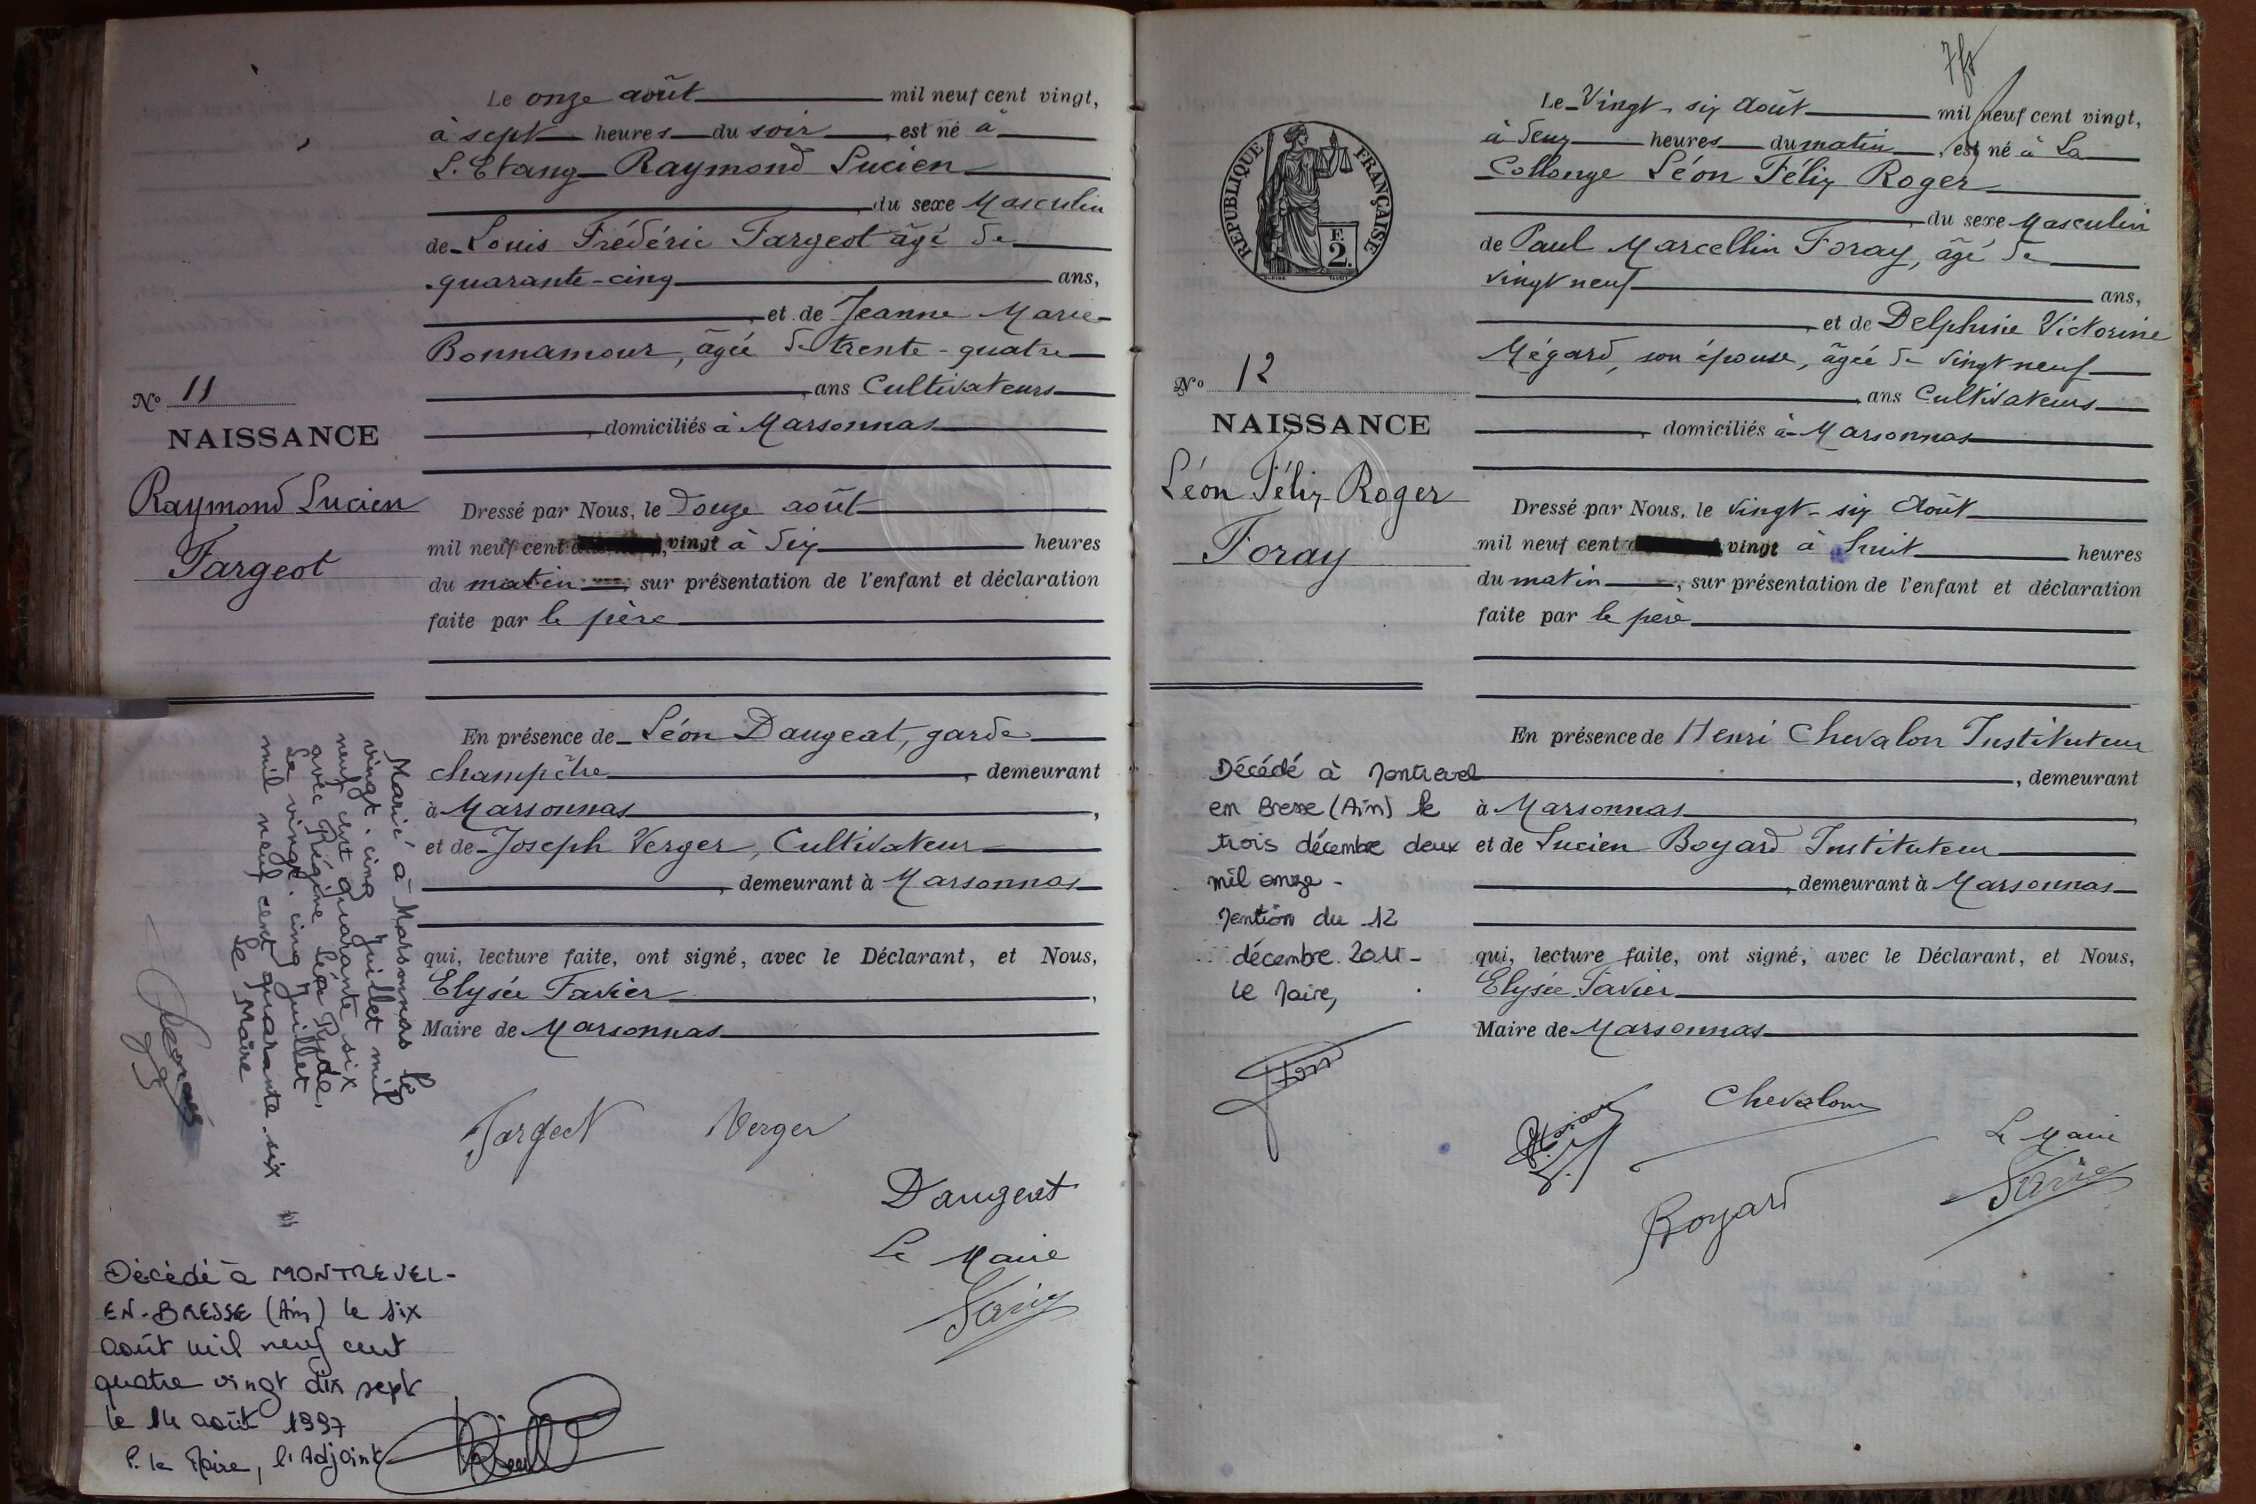 Le onze août mil neuf cent vingt,
à sept heures du soir, est né à
L'Etang Raymond Lucien
, du sexe Masculin
de Louis Frédéric Fargeot âgé de
quarante-cinq ans,
, et de Jeanne Marie
Bonnamour, âgée de trente-quatre
, ans Cultivateurs
, domiciliés à Marsonnas
No 11
NAISSANCE
Raymond Lucien
Fargeot
Dressé par Nous, le douze août
mil neuf cent vingt à dix heures
du matin, sur présentation de l'enfant et déclaration
faite par le père
En présence de Léon Daugeat, garde
champêtre, demeurant
à Marsonnas,
et de Joseph Verger, Cultivateur
, demeurant à Marsonnas
qui, lecture faite, ont signé, avec le Déclarant, et Nous,
Elysée Favier,
Maire de Marsonnas
Marié à Marsonnas le
vingt-cinq Juillet mil
neuf cent quarante six
avec Régine Léa
Le vingt-cinq Juillet
mil neuf cent quarante-six
Le Maire
Fargeot Verger
Daugeat
Le Maire
Favier
Décédé à MONTREVEL-
EN-BRESSE (Ain) le six
août mil neuf cent
quatre vingt dix sept
le 14 août 1997
P. le Maire, l'Adjoint
7
RÉPUBLIQUE FRANÇAISE
F.
2.
Le Vingt-six Août mil neuf cent vingt,
à deux heures du matin, est né à La
Collonge Léon Félix Roger
, du sexe Masculin
de Paul Marcellin Foray, âgé de
vingt neuf ans,
, et de Delphine Victorine
Mégard, son épouse, âgée de vingt neuf
, ans Cultivateurs
, domiciliés à Marsonnas
No 12
NAISSANCE
Léon Félix Roger
Foray
Dressé par Nous, le vingt-six Août
mil neuf cent vingt à huit heures
du matin, sur présentation de l'enfant et déclaration
faite par le père
En présence de Henri Chevalon Instituteur
, demeurant
à Marsonnas,
et de Lucien Boyard Instituteur
, demeurant à Marsonnas
qui, lecture faite, ont signé, avec le Déclarant, et Nous,
Elysée Favier
Maire de Marsonnas
Décédé à Montrevel
en Bresse (Ain) le
trois décembre deux
mil onze -
Mention du 12
décembre 2011 -
Le Maire,
Chevalon
Le Maire
Favier
Boyard